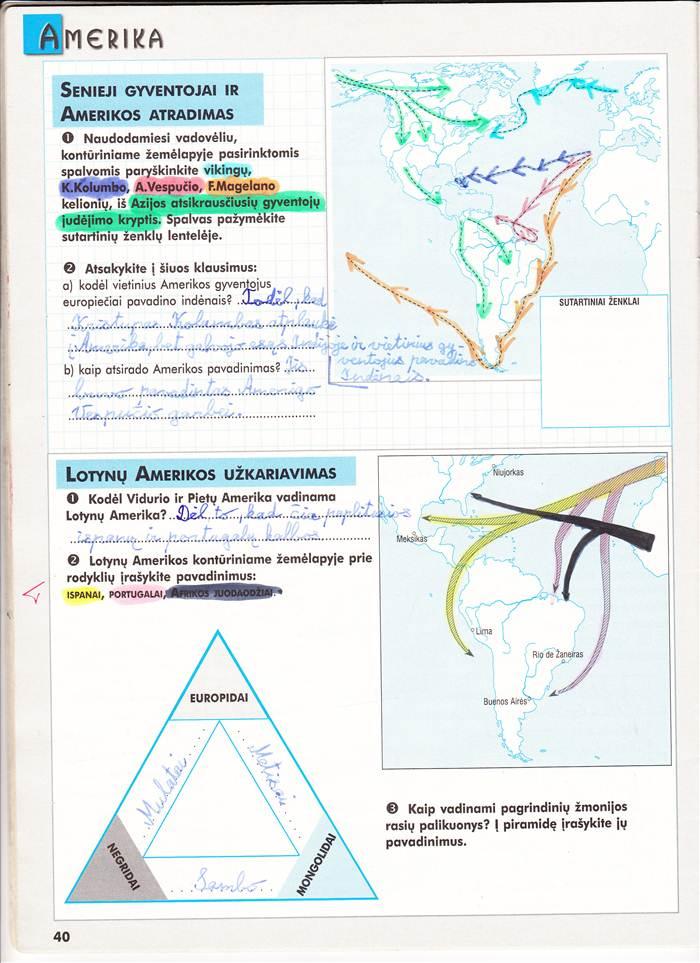 AMERIKA
SENIEJI GYVENTOJAI IR
AMERIKOS ATRADIMAS
❶ Naudodamiesi vadovėliu,
kontūriniame žemėlapyje pasirinktomis
spalvomis paryškinkite vikingų,
K.Kolumbo, A.Vespučio, F.Magelano
kelionių, iš Azijos atsikrausčiusių gyventojų
judėjimo kryptis. Spalvas pažymėkite
sutartinių ženklų lentelėje.
❷ Atsakykite į šiuos klausimus:
a) kodėl vietinius Amerikos gyventojus
europiečiai pavadino indėnais? Todėl, kad
Kristupas Kolumbas atplaukė
į Amerika, bet galvojo esąs Indijoje ir vietinius gy-
ventojus pavadino
Indėnais.
b) kaip atsirado Amerikos pavadinimas? Jis
buvo pavadintas Amerigo
Vespučio garbei.
SUTARTINIAI ŽENKLAI
LOTYNŲ AMERIKOS UŽKARIAVIMAS
❶ Kodėl Vidurio ir Pietų Amerika vadinama
Lotynų Amerika? Dėl to, kad čia paplitusios
ispanų ir portugalų kalbos
❷ Lotynų Amerikos kontūriniame žemėlapyje prie
rodyklių įrašykite pavadinimus:
ISPANAI, PORTUGALAI, AFRIKOS JUODAODŽIAI.
Niujorkas
Meksikas
Lima
Rio de Žaneiras
Buenos Airės
EUROPIDAI
Mulatai
Metisai
NEGRIDAI
Sambo
MONGOLIDAI
❸ Kaip vadinami pagrindinių žmonijos
rasių palikuonys? Į piramidę įrašykite jų
pavadinimus.
40